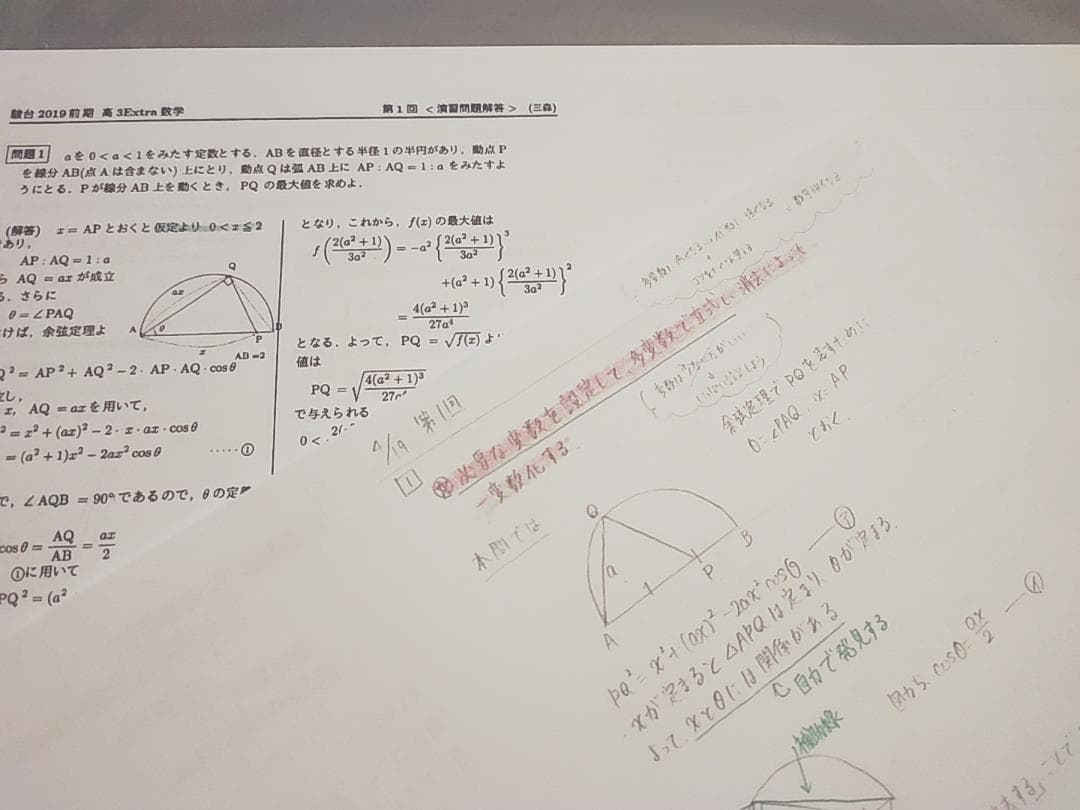 駿台 2019 前期 高 3Extra 数学
第 1 回 < 演習問題解答 > (三森)
問題 1 aを 0 < a < 1 をみたす定数とする. ABを直径とする半径 1 の半円があり, 動点 P
を線分 AB(点 A は含まない) 上にとり, 動点 Q は弧 AB 上に AP : AQ = 1 : a をみたすよ
うにとる. P が線分 AB 上を動くとき, PQ の最大値を求めよ.
(解答) x = AP とおくと 仮定より 0 < x ≦ 2
であり,
AP : AQ = 1 : a
ら AQ = ax が成立
る. さらに
θ = ∠PAQ
けば, 余弦定理よ
Q
ax
A
θ
P
B
x
AB = 2
Q² = AP² + AQ² − 2 · AP · AQ · cos θ
x, AQ = ax を用いて,
² = x² + (ax)² − 2 · x · ax · cos θ
= (a² + 1)x² − 2ax² cos θ ·····①
で, ∠AQB = 90° であるので, θ の定義
cos θ = AQ/AB = ax/2
①に用いて
PQ² = (a²
となり, これから, f(x) の最大値は
f(2(a² + 1)/3a²) = −a² {2(a² + 1)/3a²}³
+(a² + 1) {2(a² + 1)/3a²}²
= 4(a² + 1)³/27a⁴
となる. よって, PQ = √f(x) よ
値は
PQ = √4(a² + 1)³/27a
で与えられる
0 <
4/19 第1回
1 必要な変数を設定して、多変数で立式し、消去によって
一変数化する。
本問では
余弦定理で PQ を表すために
θ = ∠PAQ, x = AP
とおく.
Q
a
1
A
P
B
PQ² = x² + (ax)² − 2ax² cosθ —㋐
xが定まると △APQ は定まり, θが定まる.
よって, xとθには関係がある
自力で発見する
図から, cosθ = ax/2 —㋑
補助線